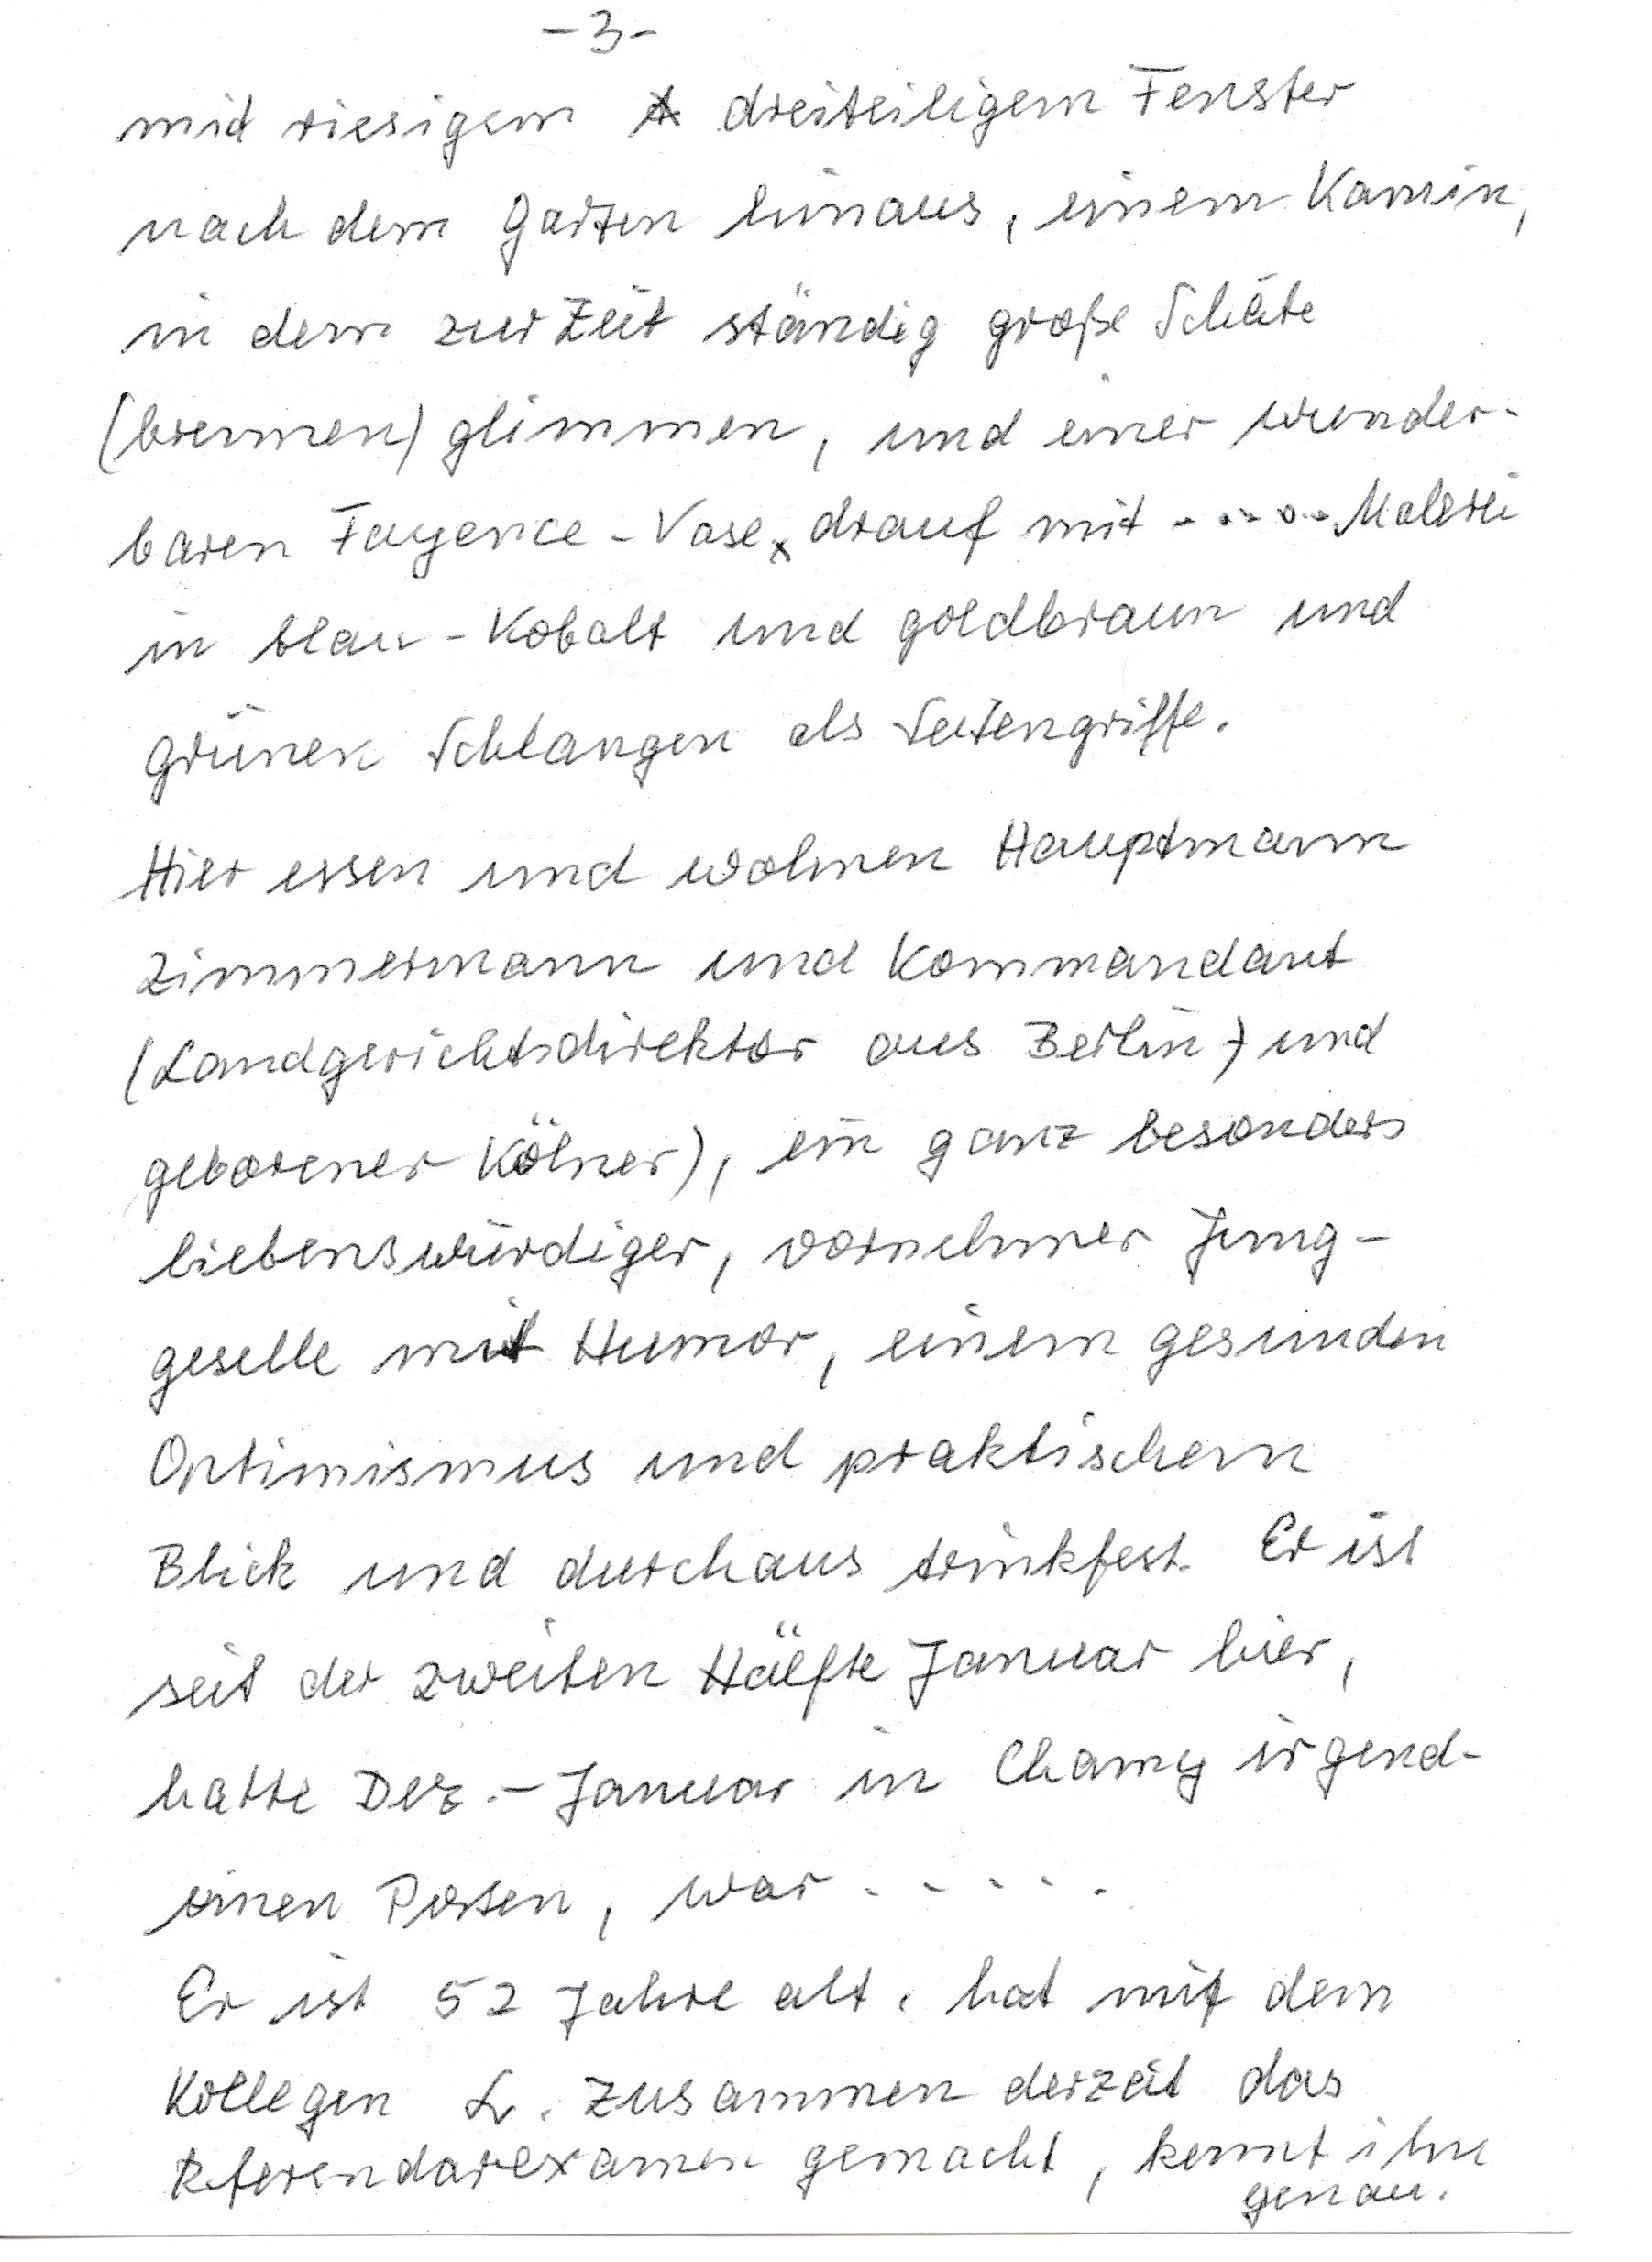 -3-
mid riesigem dreiteiligem Fenster
nach dem Garten hinaus, einem Kamin,
in dem zur Zeit ständig große Scheite
(brennen) glimmen, und einer wunder-
baren Fayence-Vase drauf mit ..... Malerei
in blau-Kobalt und goldbraun und
grünen Schlangen als Seitengriffe.
Hier essen und wohnen Hauptmann
Zimmermann und Kommandant
(Landgerichtsdirektor aus Berlin) und
geborener Kölner), ein ganz besonders
liebenswürdiger, vornehmer Jung-
geselle mit Humor, einem gesunden
Optimismus und praktischem
Blick und durchaus trinkfest. Er ist
seit der zweiten Hälfte Januar hier,
hatte Dez.-Januar in Chamy irgend-
einen Posten, war .....
Er ist 52 Jahre alt, hat mit dem
Kollegen L. zusammen derzeit das
Referendarexamen gemacht, kennt ihn
genau.